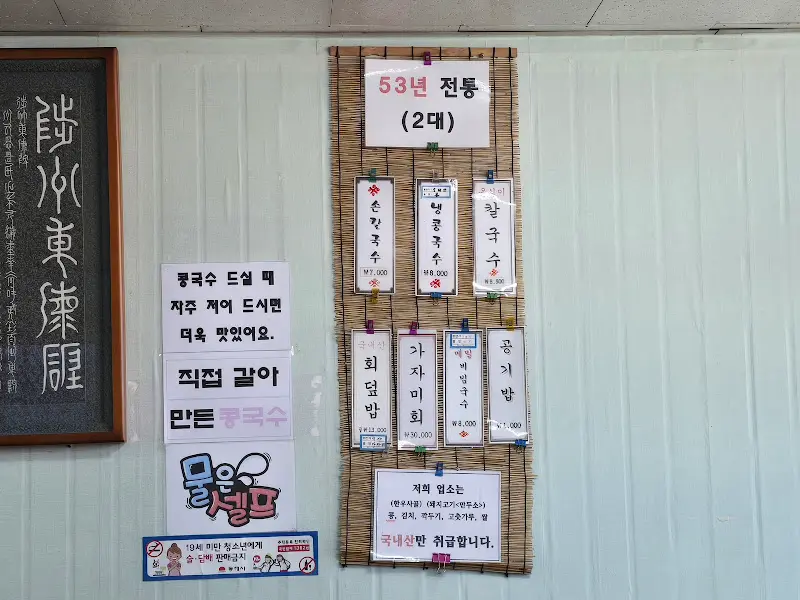 陟州東海碑
53년 전통
(2대)
손칼국수
₩7,000
냉콩국수
₩8,000
칼국수
회덮밥
₩13,000
가자미회
₩30,000
메밀
비빔국수
₩8,000
공기밥
₩1,000
콩국수 드실 때
자주 저어 드시면
더욱 맛있어요.
직접 갈아
만든 콩국수
물은
셀프
19세 미만 청소년에게
술·담배 판매금지
동해시
저희 업소는
(한우사골) (돼지고기<만두소>)
콩, 김치, 깍두기, 고춧가루, 쌀
국내산만 취급합니다.